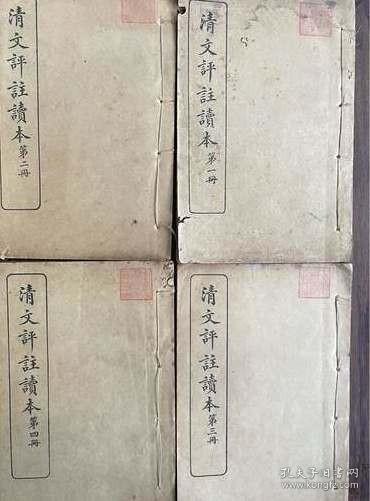 清文評註讀本第二冊
清文評註讀本第一冊
清文評註讀本第四冊
清文評註讀本第三冊
孔夫子旧书网
www.kongfz.com